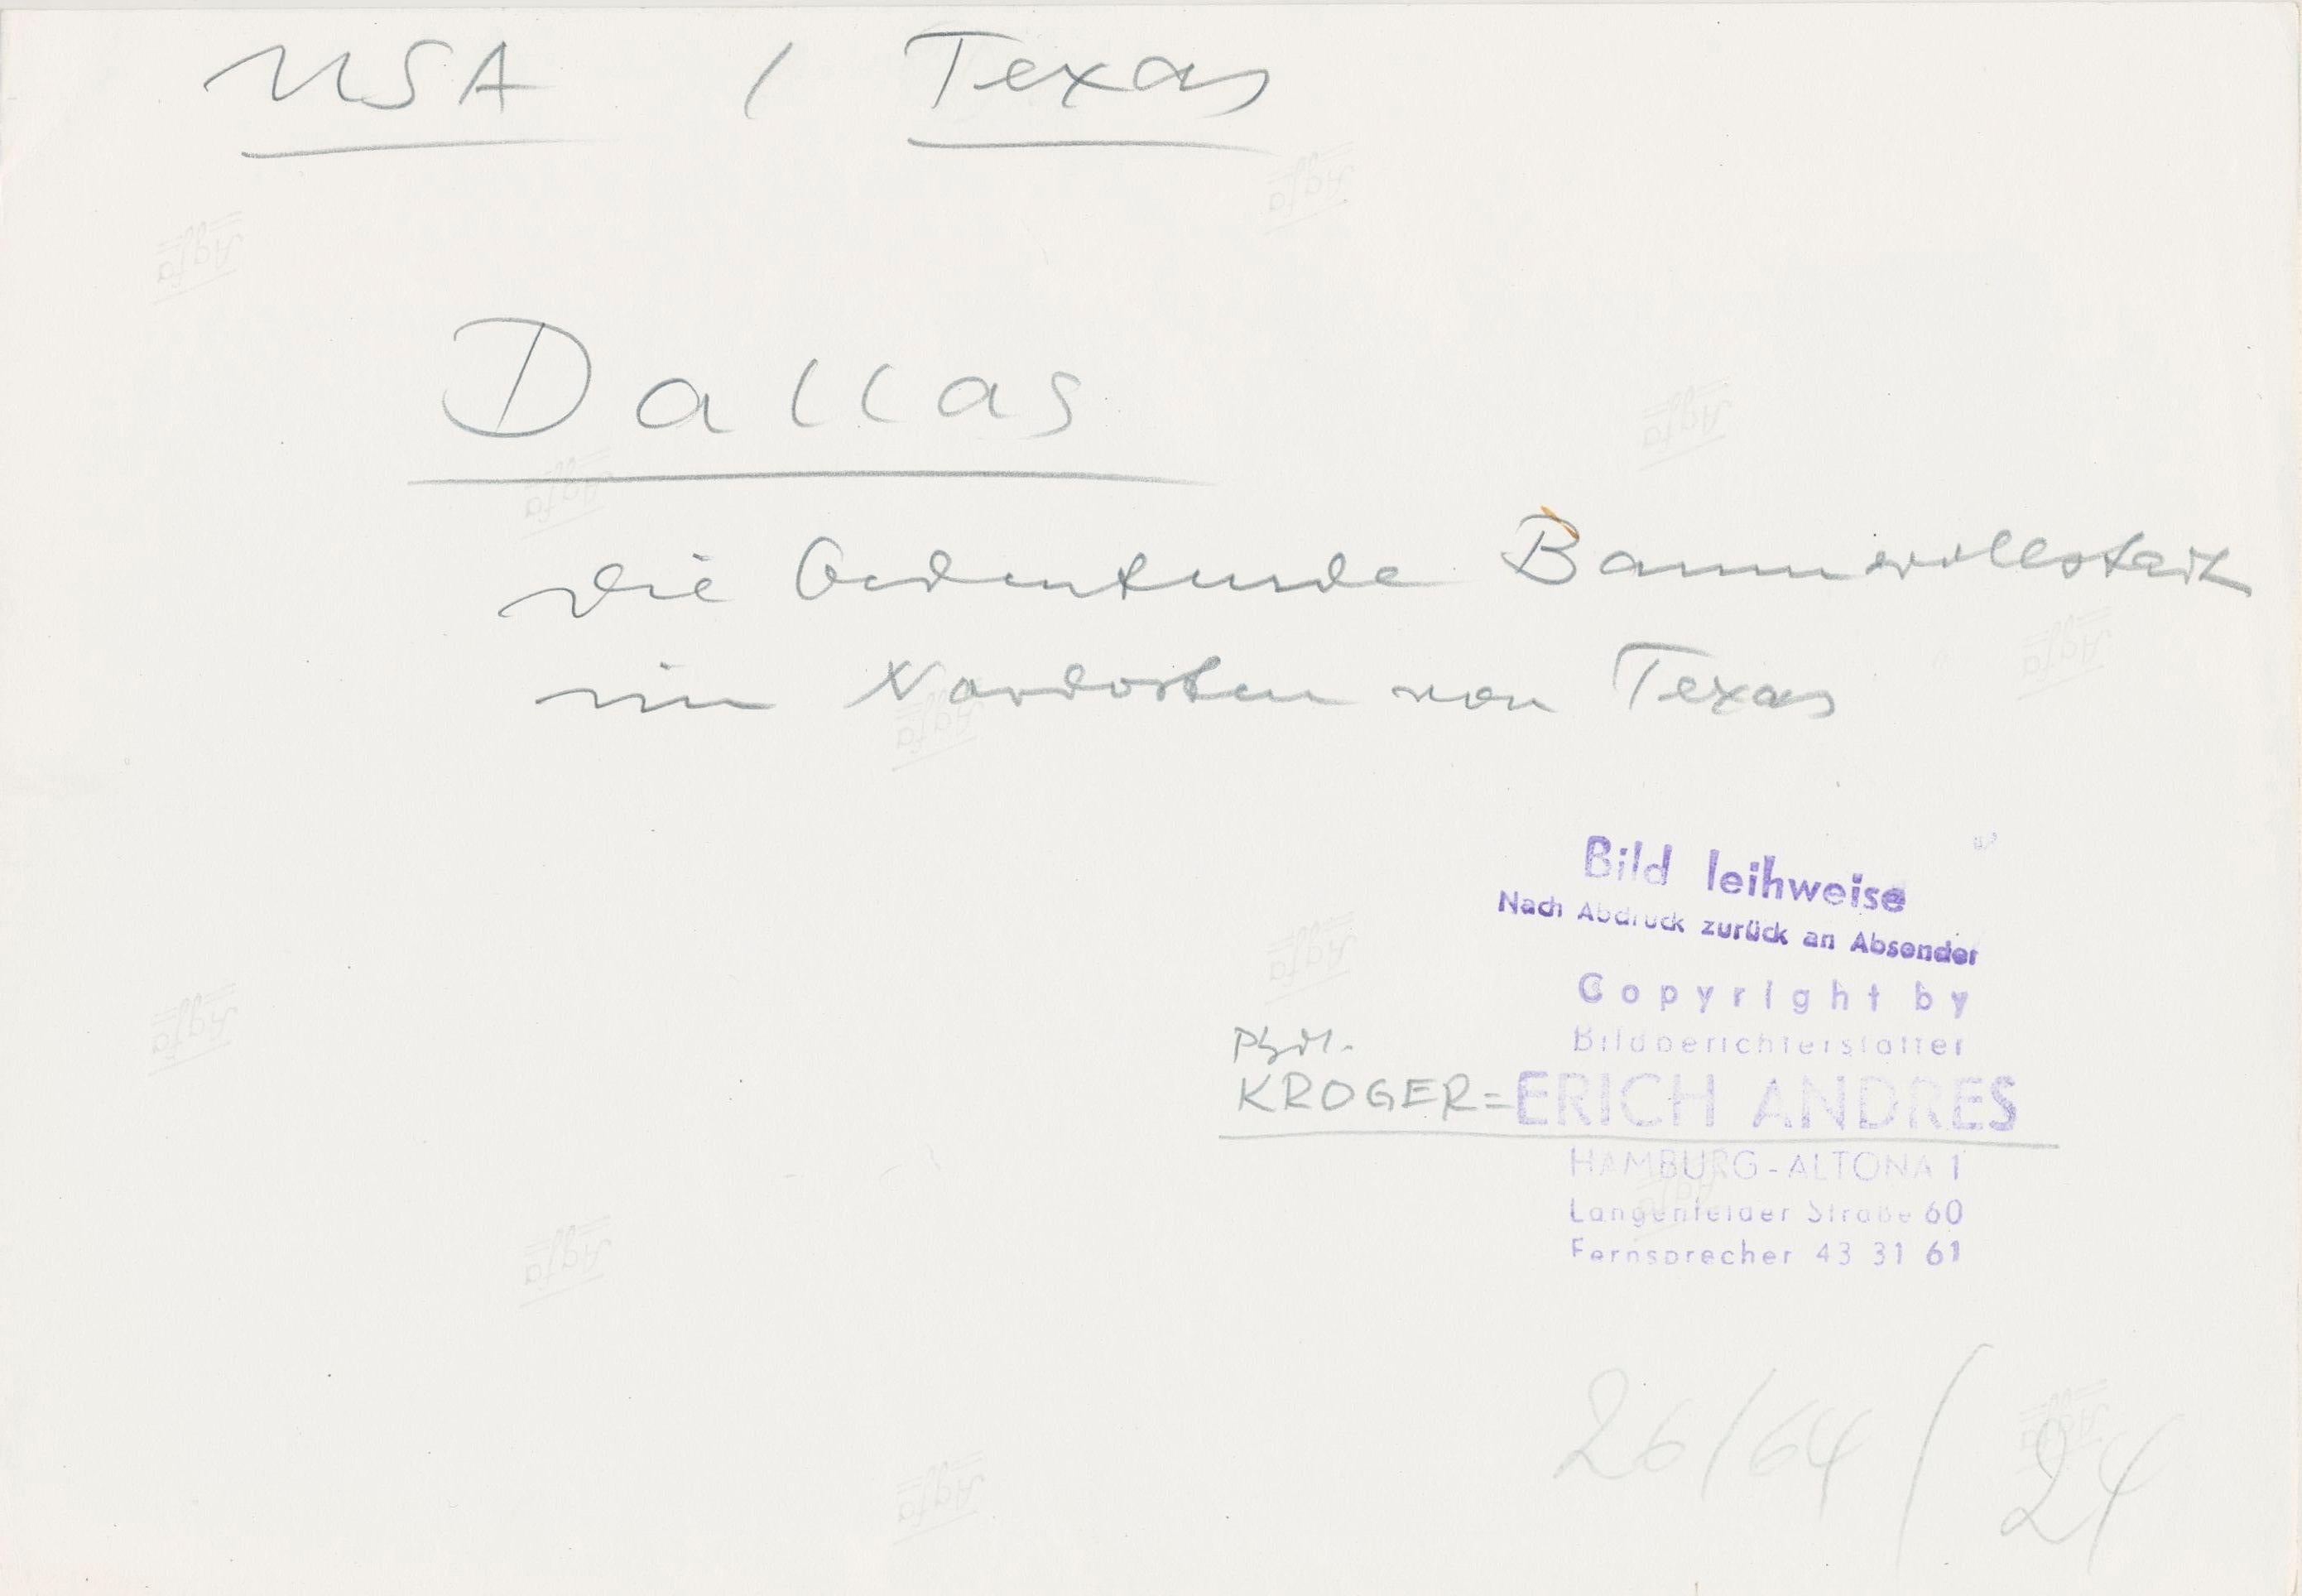 USA / Texas
Dallas
die bedeutende Baumwollstadt
im Nordosten von Texas
Bild leihweise
Nach Abdruck zurück an Absender
Copyright by
Bildberichterstatter
KROGER=ERICH ANDRES
HAMBURG-ALTONA 1
Langenfelder Straße 60
Fernsprecher 43 31 61
26/64/24
Agfa
Agfa
Agfa
Agfa
Agfa
Agfa
Agfa
Agfa
Agfa
Agfa
Agfa